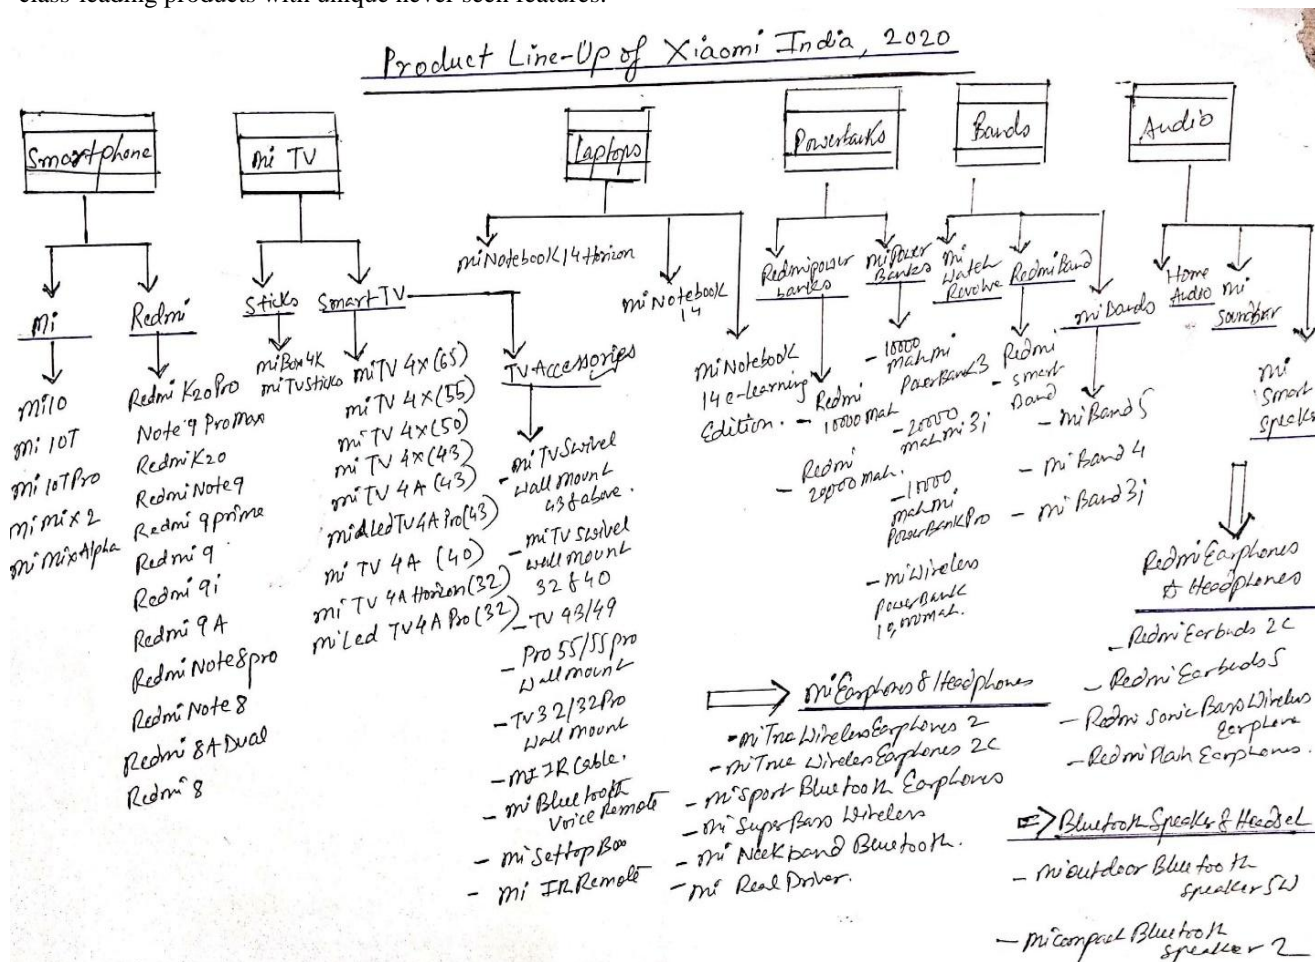 class-leading products with unique never seen features.
Product Line-Up of Xiaomi India, 2020
Smartphone
Mi
Mi10
Mi 10T
Mi 10TPro
Mi Mix 2
Mi Mix Alpha
Redmi
Redmi K20Pro
Note 9 ProMax
Redmi K20
Redmi Note 9
Redmi 9 prime
Redmi 9
Redmi 9i
Redmi 9A
Redmi Note 8 pro
Redmi Note 8
Redmi 8A Dual
Redmi 8
Mi TV
Sticks
Mi Box 4K
Mi TV Sticks
Smart TV
Mi TV 4X (65)
Mi TV 4X (55)
Mi TV 4X (50)
Mi TV 4X (43)
Mi TV 4A (43)
Led TV 4A Pro (43)
Mi TV 4A (40)
Mi TV 4A Horizon (32)
Mi Led TV 4A Pro (32)
TV Accessories
- Mi TV Swivel
Wall Mount
43 & above.
- Mi TV Swivel
Wall Mount
32 & 40
- TV 43/49
- Pro 55/55 pro
Wall Mount
- TV 32/32Pro
Wall Mount
- MI IR Cable.
- Mi Bluetooth
Voice Remote
- Mi Settop Box
- Mi IR Remote
Laptops
Mi Notebook 14 Horizon
Mi Notebook
14
Mi Notebook
14 e-learning
Edition.
Powerbanks
Redmi power
banks
- Redmi
10000 mah
- Redmi
20000 mah.
Mi Power
Banks
- 10000
mah mi
PowerBank 3
- 20000
mah mi 3i
- 10000
mah mi
PowerBank Pro
- Mi Wireless
PowerBank
10,000 mah.
Bands
Mi
Watch
Revolve
Redmi Band
- Redmi
Smart
Band
Mi Bands
- Mi Band 5
- Mi Band 4
- Mi Band 3i
Audio
Home
Audio
Mi
Soundbar
Mi
Smart
Speaker
Redmi Earphones
& Headphones
- Redmi Earbuds 2C
- Redmi Earbuds S
- Redmi Sonic Bass Wireless
Earphone
- Redmi Plain Earphones.
Mi Earphones & Headphones
- Mi True Wireless Earphones 2
- Mi True Wireless Earphones 2C
- Mi Sport Bluetooth Earphones
- Mi Super Bass Wireless
- Mi Neckband Bluetooth.
- Mi Real Driver.
Bluetooth Speaker & Headset
- Mi outdoor Bluetooth
Speaker 5W
- Mi compact Bluetooth
Speaker 2